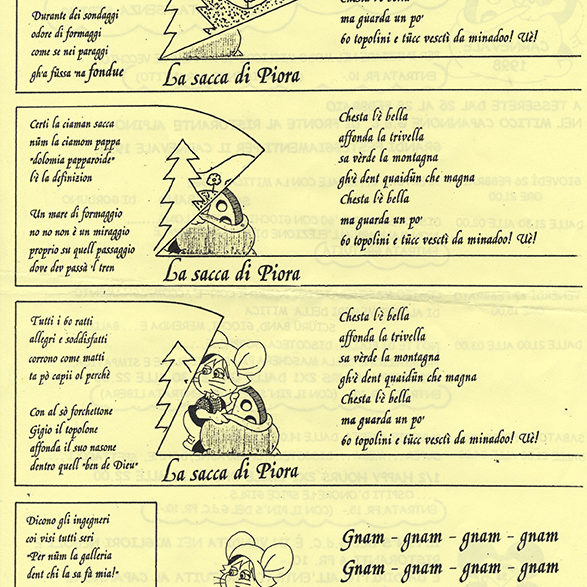 Durante dei sondaggi
odore di formaggi
come se nei paraggi
gh'a füssa 'na fondue
La sacca di Piora
Chesta l'è bella
ma guarda un po'
60 topolini e tücc vestì da minadoo! Uè!
Certi la ciaman sacca
nüm la ciamom pappa
"dolomia papparoide"
l'è la definizion
Un mare di formaggio
no no non è un miraggio
proprio su quell passaggio
dove dev passà 'l tren
La sacca di Piora
Chesta l'è bella
affonda la trivella
sa vèrde la montagna
gh'è dent quaidün che magna
Chesta l'è bella
ma guarda un po'
60 topolini e tücc vestì da minadoo! Uè!
Tutti i 60 ratti
allegri e soddisfatti
corrono come matti
ta pò capii ol perchè
Con al sò forchettone
Gigio il topolone
affonda il suo nasone
dentro quell "ben de Dieu"
La sacca di Piora
Chesta l'è bella
affonda la trivella
sa vèrde la montagna
gh'è dent quaidün che magna
Chesta l'è bella
ma guarda un po'
60 topolini e tücc vestì da minadoo! Uè!
Dicono gli ingegneri
coi visi tutti seri
"Per nüm la galleria
dent chi la sa fà mia!"
Gnam - gnam - gnam - gnam
Gnam - gnam - gnam - gnam